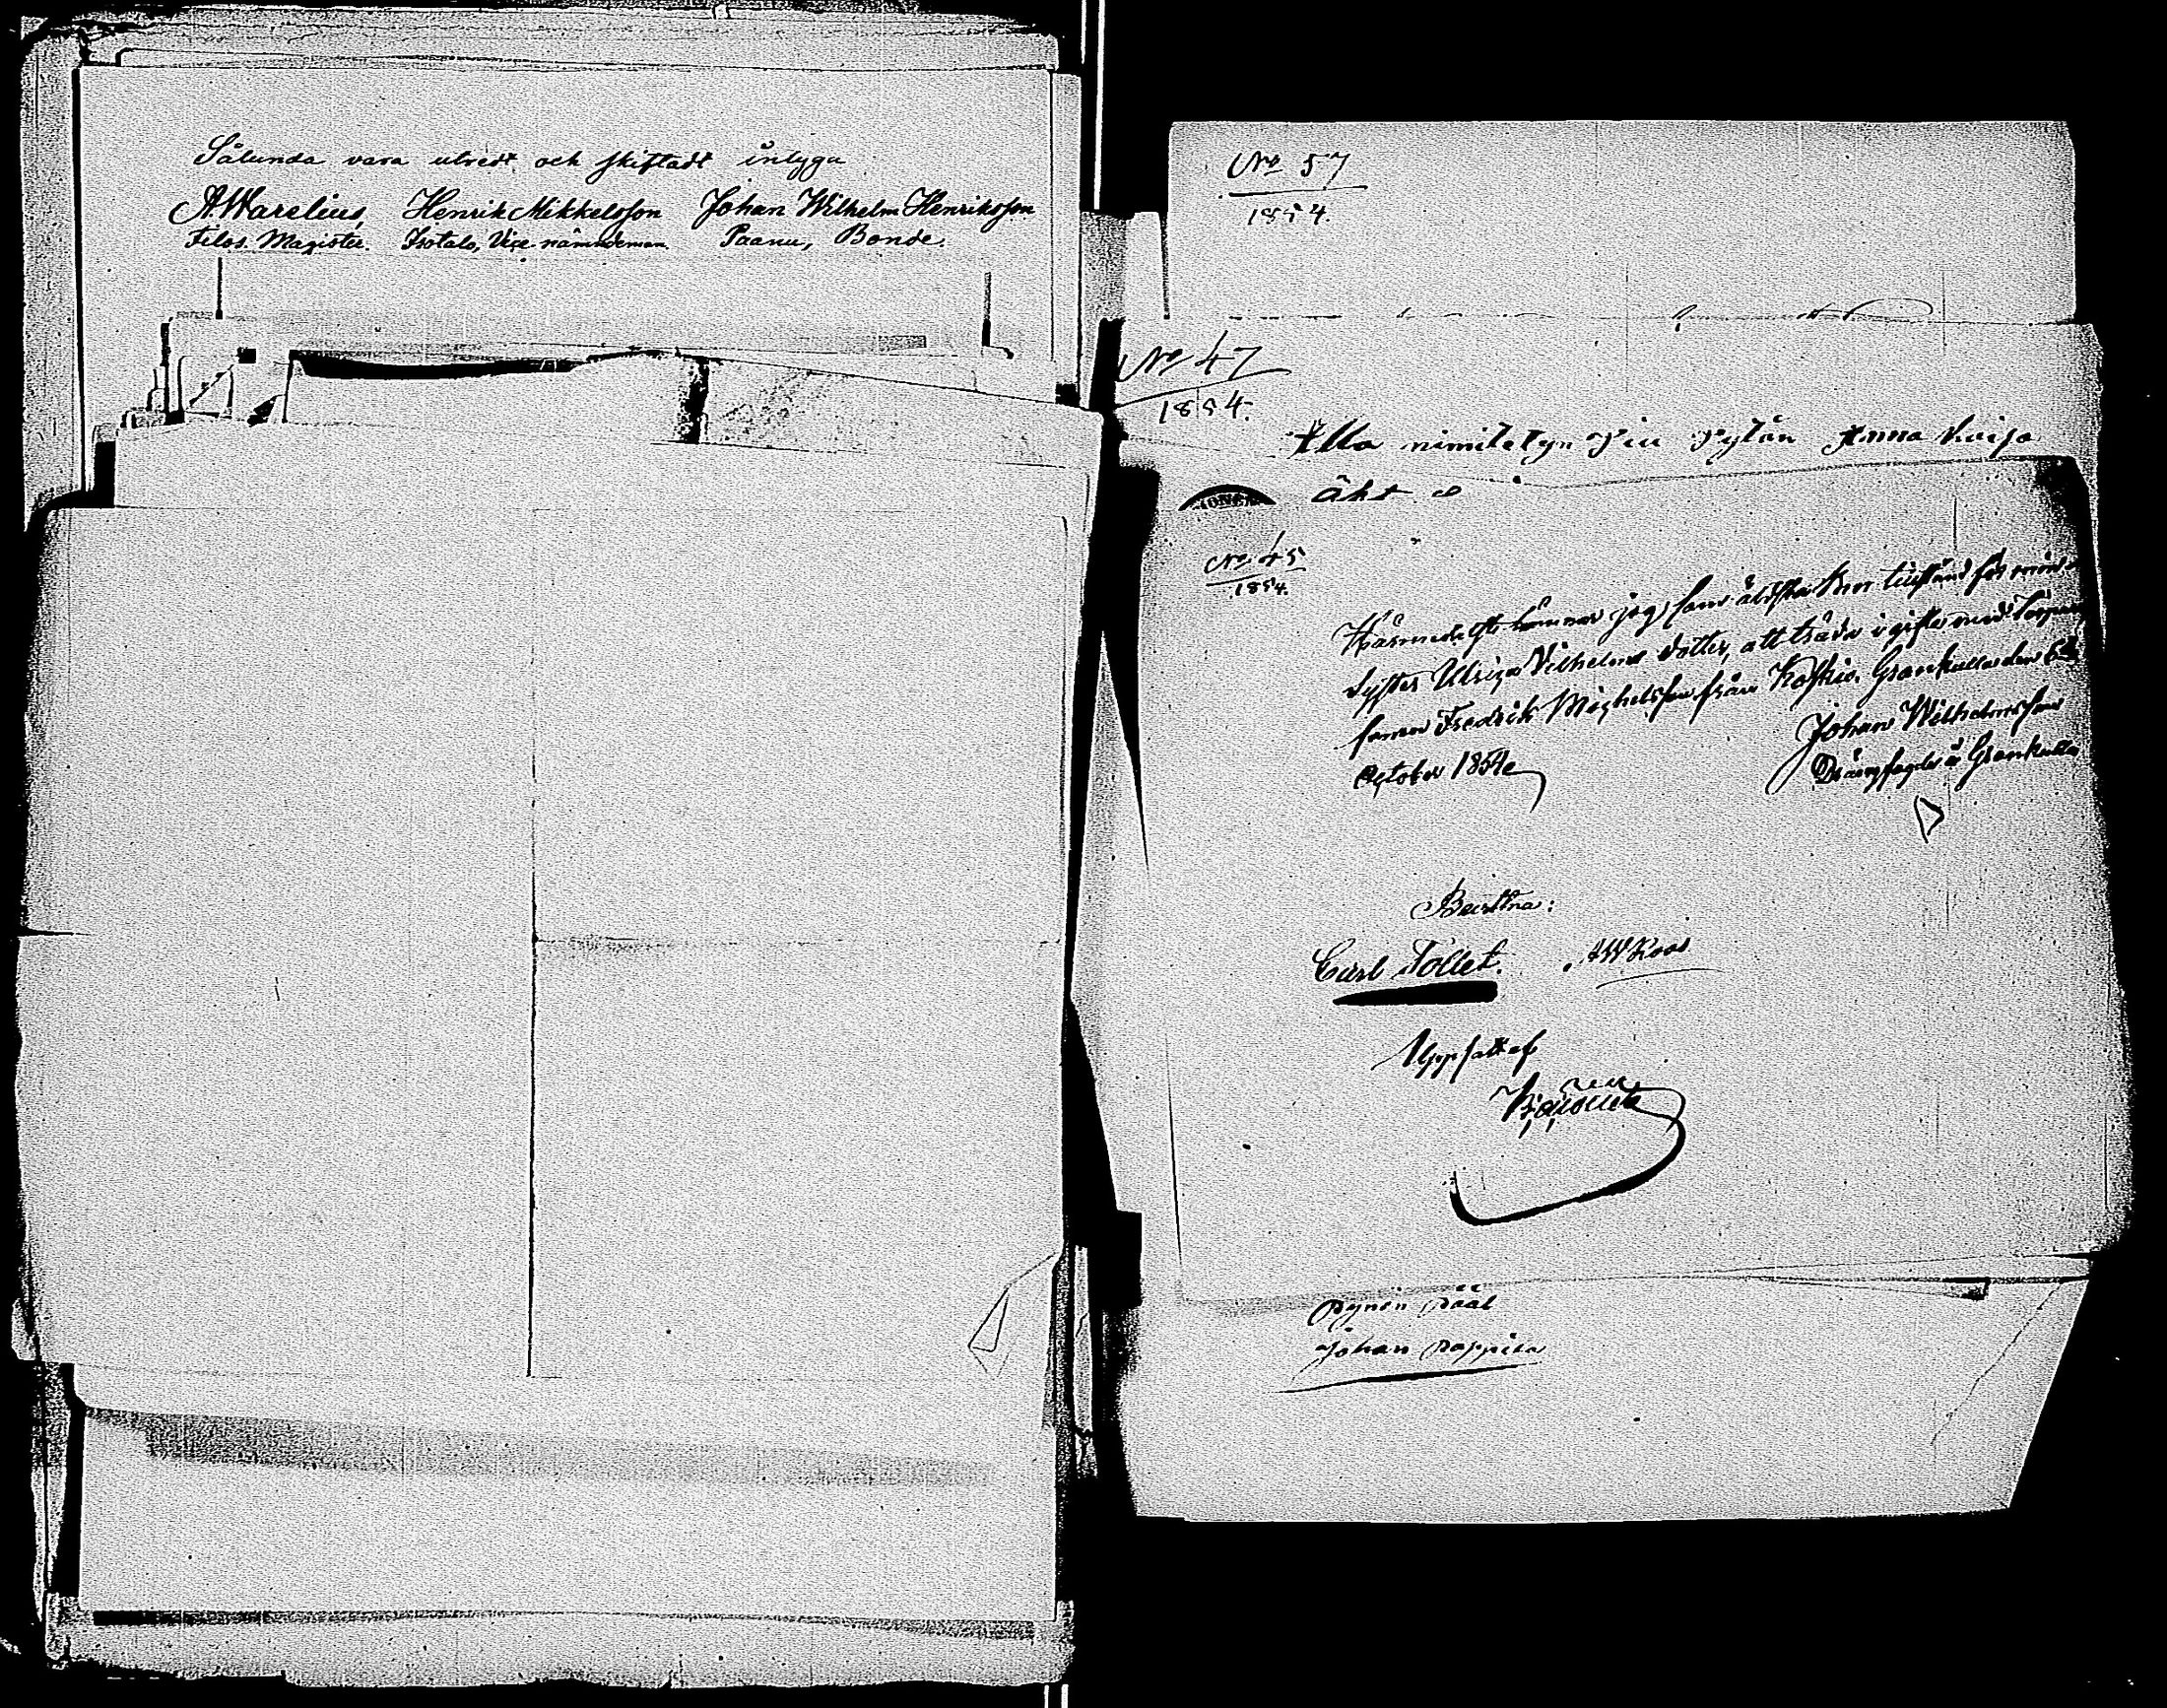 Sålunda vara utredt och skiftadt intyga
A. Warelius, Henrik Mikkelsson Johan Wilhelm Henriksson
Filos. Magister. Isotalo, Vice nämndeman. Paanu, Bonde.
No 57
1854.
No 47
1854.
Ylla nimitetyn Anna Kaisa
äkt
No 45
1854.
Härmedelst lämnar jag som äldsta bror tillstånd för min
Syster Ulrica Vilhelms dotter, att träda i gifte med
Fredrik Michelsson från Koskis. Grankulla den 6te
October 1854
Johan Wilhelmsson
Grankulla
Bevittna:
Carl Tollet. AW Roos
Uppsatt af
Johan